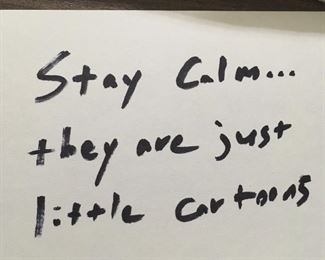 Stay Calm...
they are just
little cartoons